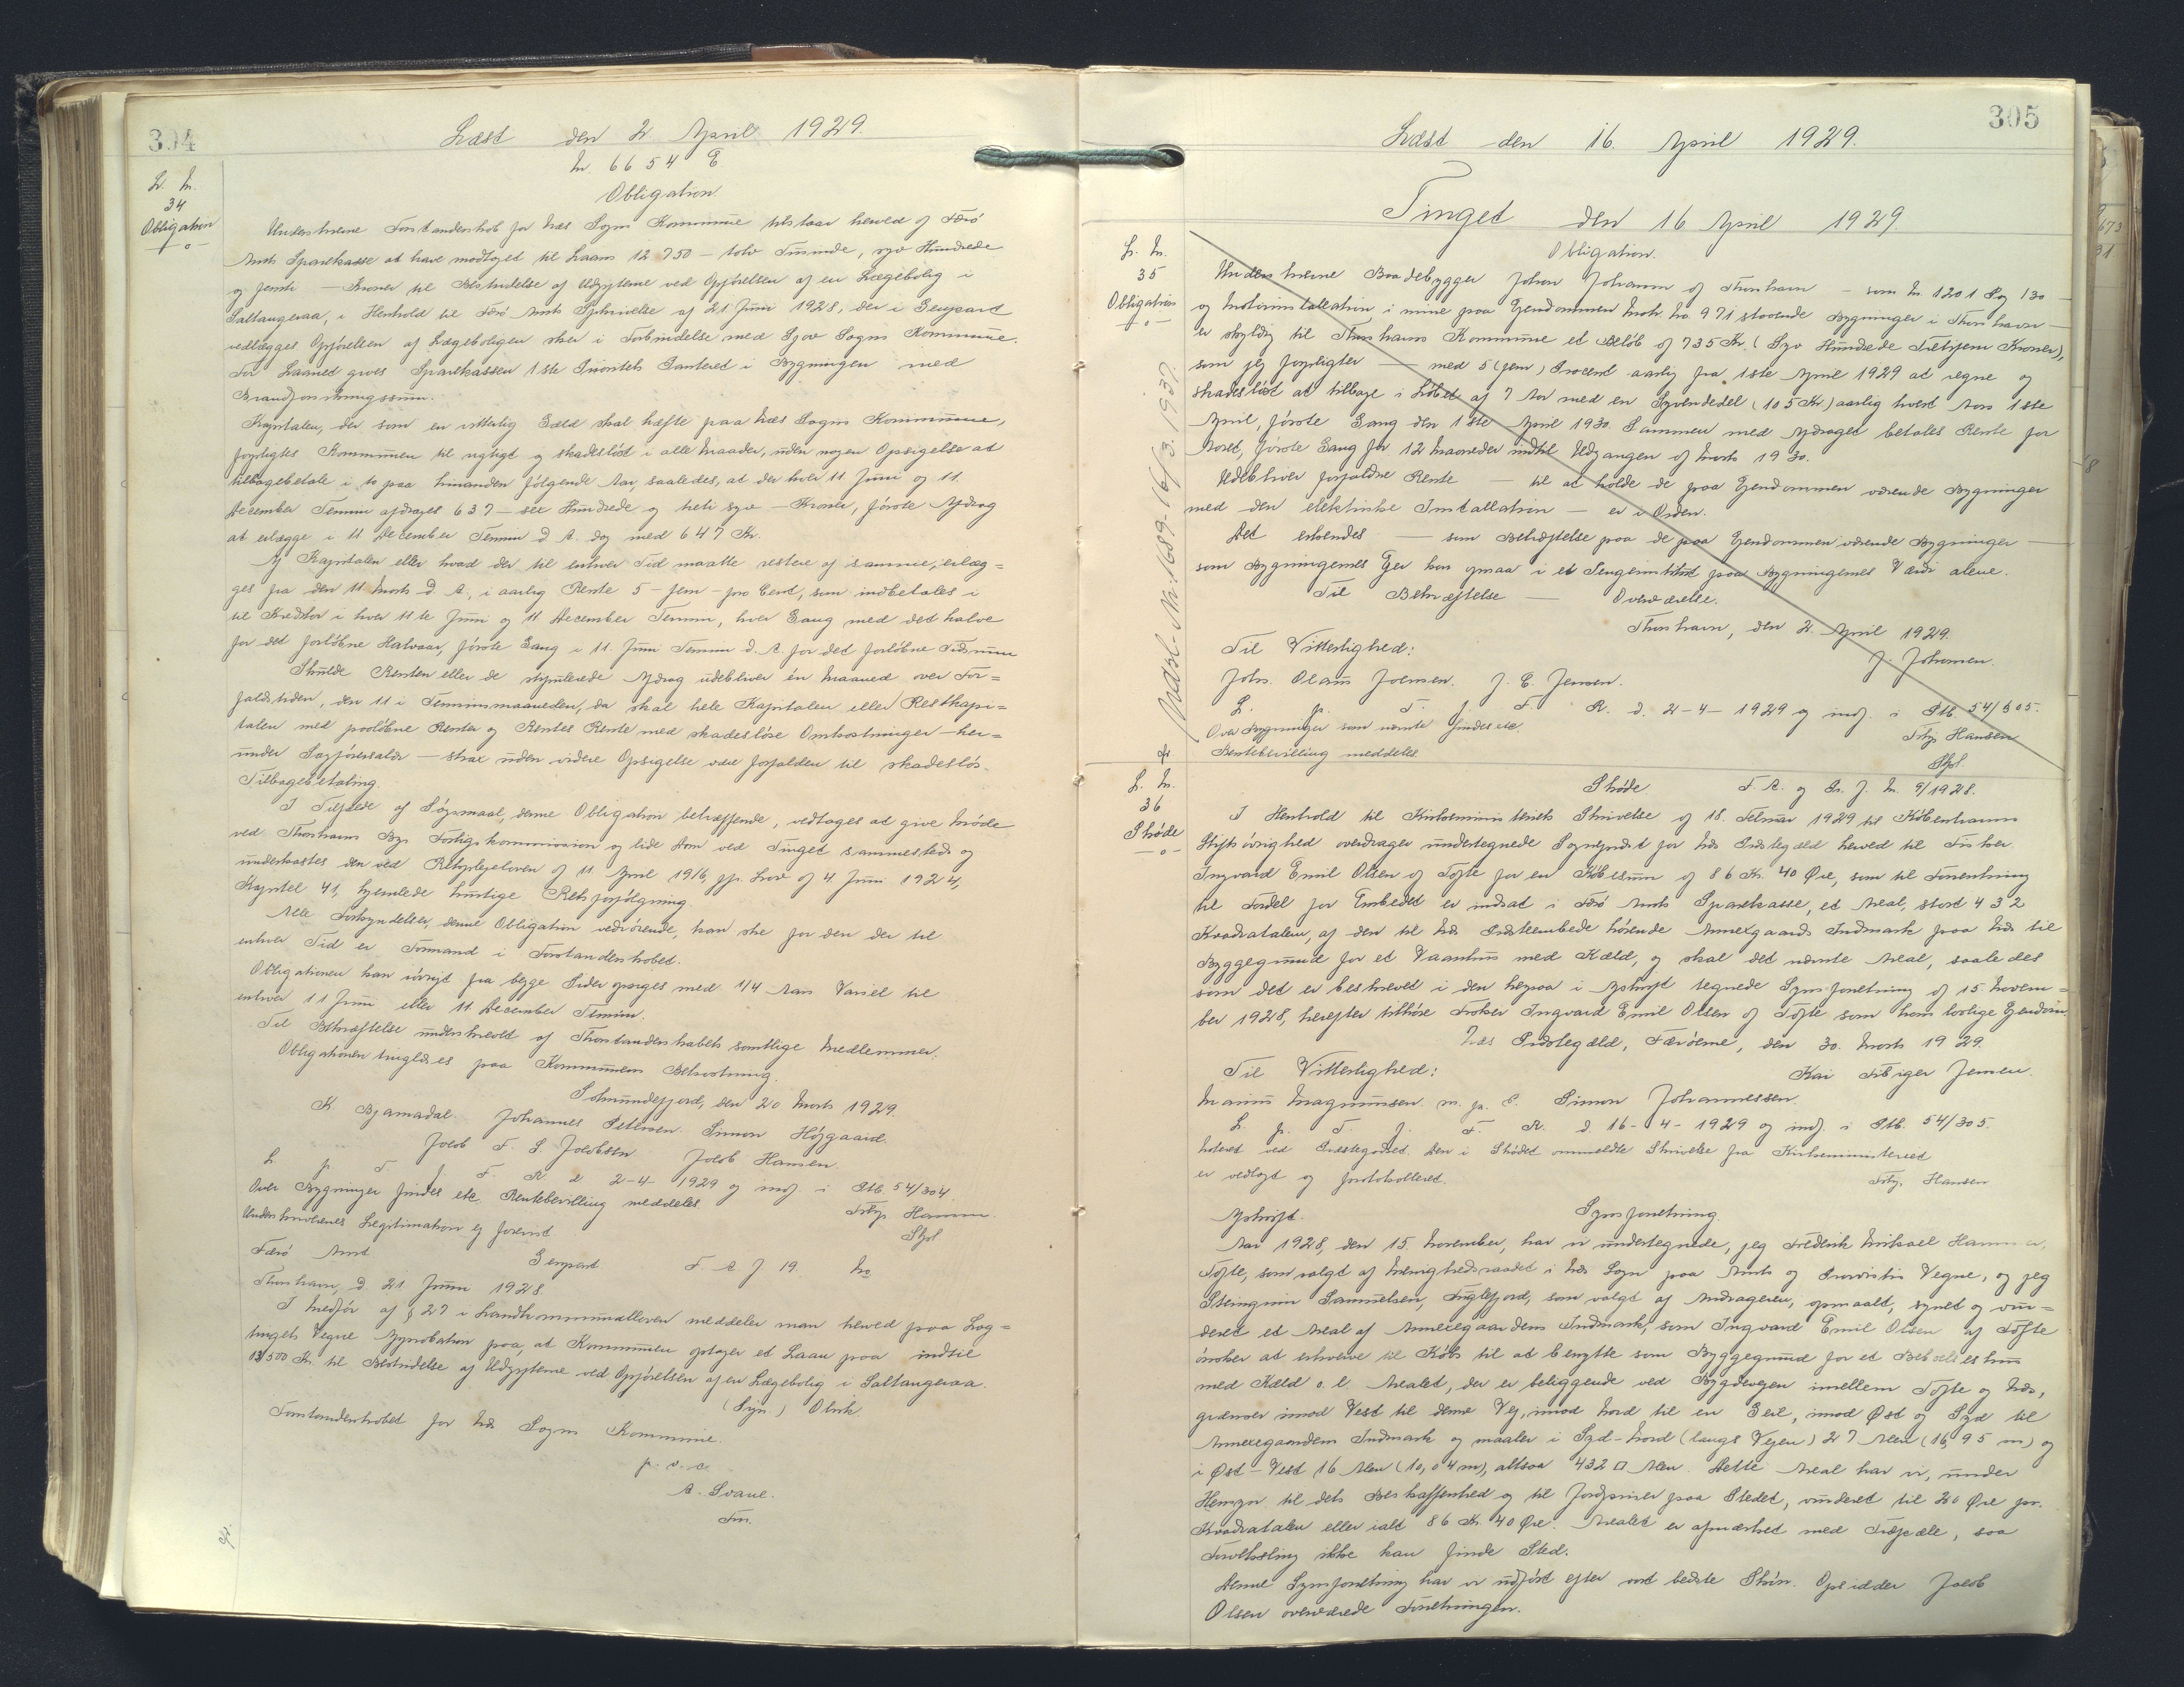 304
Læst den 2. April 1929.
Nr 6654 E
Obligation.
L. Nr.
34
Obligation
Underskrevne Forstanderskab for Næs Sogns Kommune tilstaar herved af Færø
Amts Sparekasse at have modtaget til Laans 12 750 — tolv Tusinde, syv Hundrede
og femti — Kroner til Bestridelse af Udgifterne ved Opførelsen af en Lægebolig i
Saltangeraa, i Henhold til Færø Amts Skrivelse af 21. Juni 1928, der i Genpart
vedlægges. Opførelsen af Lægeboligen sker i Forbindelse med Sjov Sogns Kommune.
For Laanet gives Sparekassen 1ste Prioritets Panteret i Bygningen med
Brandforsikringssum.
Kapitalen, der som en vitterlig Gæld skal hæfte paa Næs Sogns Kommune,
forpligtes Kommunen til rigtigt og skadesløst i alle Maader, uden nogen Opsigelse at
tilbagebetale i to paa hinanden følgende Aar, saaledes, at der hver 11 Juni og 11.
December Termin afdrages 637 — sex Hundrede og treti syv — Kroner, første Afdrag
at erlægge i 11 December Termin d. A. dog med 647 Kr.
Af Kapitalen eller hvad der til enhver Tid maatte restere af samme, erlæg=
ges fra den 11 Marts d. A., i aarlig Rente 5 — fem — pro Cent, som indbetales i
til Kreditor i hver 11te Juni og 11 December Termin, hver Gang med det halve
for det forløbne Halvaar, første Gang i 11. Juni Termin d. A. for det forløbne Tidsrum
Skulde Renten eller de stipulerede Afdrag udebliver én Maaned over For=
faldstiden, den 11 i Terminsmaaneden, da skal hele Kapitalen eller Restkapi=
talen med paaløbne Renter og Rentes Rente med skadesløse Omkostninger — her=
under Sagførersalær — strax uden videre Opsigelse være forfalden til skadesløs
Tilbagebetaling.
I Tilfælde af Søgsmaal, denne Obligation betræffende, vedtages at give Møde
ved Thorshavns Bys Forligskommission og lide Dom ved Tinget sammesteds og
underkastes den ved Retsplejeloven af 11 April 1916, jfr. Lov af 4. Juni 1924,
Kapitel 41, hjemlede hurtige Retsforfølgning.
Alle Forkyndelser, denne Obligation vedrørende, kan ske for den der til
enhver Tid er Formand i Forstanderskabet.
Obligationen kan iøvrigt fra begge Sider opsiges med 1/4 Aars Varsel til
enhver 11 Juni eller 11 December Termin.
Til Bekræftelse underskrevet af Forstanderskabets samtlige Medlemmer.
Obligationen tinglæses paa Kommunens Bekostning.
Solmundefjord, den 20 Marts 1929.
K. Bjarnadal. Johannes Petersen. Simon Højgaard.
Jacob F. S. Jacobsen Jacob Hansen.
L. p. T. j. F. R. d. 2-4-1929 og indf. i Ptb. 54/304.
Over Bygninger findes etc. Rentebevilling meddeles
Underskrivernes Legitimation ej forevist
Ditlf. Hansen.
Stfol
Færø Amt. Genpart. F. A. J. 19. No
Thorshavn, d. 21 Juni 1928.
I Medfør af § 27 i Landkommunalloven meddeler man herved paa Lag=
tingets Vegne Approbation paa, at Kommunen optager et Laan paa indtil
13500 Kr. til Bestridelse af Udgifterne ved Opførelsen af en Lægebolig i Saltangeraa.
(Sign.) Olrik
Forstanderskabet for Næs Sogns Kommune.
p. v. a.
A. Svane.
Fm.
305
Læst den 16. April 1929.
Tinget den 16 April 1929.
Obligation.
L. Nr.
35
Obligation
Underskrevne Baadebygger Johan Johansen af Thorshavn — som Nr. 1201 Pag 130 —
og Motorinstallation i mine paa Ejendommen Matr. No. 971 staaende Bygninger i Thorshavn —
er skyldig til Thorshavns Kommune et Beløb af 735 Kr. (Syv Hundrede Tretifem Kroner),
som jeg forpligter — med 5 (fem) Procent aarlig fra 1ste April 1929 at regne og
skadesløst at tilbage i Løbet af 7 Aar med en Syvendedel (105 Kr.) aarlig hvert Aars 1ste
April, første Gang den 1ste April 1930. Sammen med Afdraget betales Rente for
Aaret, første Gang for 12 Maaneder indtil Udgangen af Marts 1930.
Udebliver forfaldne Rente — til at holde de paa Ejendommen værende Bygninger
med den elektriske Installation — er i Orden.
Det erkendes — som Bekræftelse paa de paa Ejendommen værende Bygninger —
som Bygningernes Ejer kan opnaa i et Pengeinstitut paa Bygningernes Værdi alene.
Til Bekræftelse — Overværelse.
Thorshavn, den 2. April 1929.
J. Johansen.
Til Vitterlighed:
Johs. Olaus Joensen. J. E. Jensen.
L. p. T. j. F. R. d. 2-4-1929 og indf. i Ptb. 54/305.
Over Bygninger som nævnte findes etc.
Rentebevilling meddeles.
Ditlf. Hansen
Stfol.
Udsl. Nr. 1689-16/3. 1937.
L. Nr.
36
Skøde
Skøde F. A. og Gr. J. Nr. 9/1928.
I Henhold til Kirkeministeriets Skrivelse af 18. Februar 1929 til Københavns
Stiftsøvrighed overdrager undertegnede Sognepræst for Næs Præstegæld herved til Fisker
Ingvard Emil Olsen af Tofte for en Købesum af 86 Kr. 40 Øre, som til Forrentning
til Fordel for Embedet er indsat i Færø Amts Sparekasse, et Areal, stort 432
Kvadratalen, af den til Næs Præsteembede hørende Annexgaards Indmark paa Næs til
Byggegrund for et Vaaninghus med Kæld, og skal det nævnte Areal, saaledes
som det er beskrevet i den herpaa i Afskrift tegnede Synsforretning af 15. Novem=
ber 1928, herefter tilhøre Fisker Ingvard Emil Olsen af Tofte som hans lovlige Ejendom.
Næs Præstegæld, Færøerne, den 30. Marts 1929.
Kai Fibiger Jensen.
Til Vitterlighed:
Maurus Magnussen. m. p. S. Simon Johannessen.
L. p. T. j. F. R. d. 16-4-1929 og indf. i Ptb. 54/305.
Noteret ved Præstegodset. Den i Skødet ommeldte Skrivelse fra Kirkeministeriet
er vedlagt og protokolleret.
Ditlf. Hansen
Afskrift. Synsforretning.
Aar 1928, den 15. November, har vi undertegnede, jeg Frederik Mikael Hammer,
Tofte, som valgt af Menighedsraadet i Næs Sogn paa Amts og Provstis Vegne, og jeg
Steingrim Samuelsen, Fuglefjord, som valgt af Andrageren, opmaalt, synet og vur=
deret et Areal af Annexgaardens Indmark, som Ingvard Emil Olsen af Tofte
ønsker at erhverve til Købs til at benytte som Byggegrund for et Beboelseshus
med Kæld o. l. Arealet, der er beliggende ved Bygdevejen imellem Tofte og Næs,
grænser imod Vest til denne Vej, imod Nord til en Geil, imod Øst og Syd til
Annexgaardens Indmark og maaler i Syd-Nord (langs Vejen) 27 Alen (16,95 m) og
i Øst-Vest 16 Alen (10,04 m), altsaa 432 □ Alen. Dette Areal har vi, under
Hensyn til dets Beskaffenhed og til Jordpriser paa Stedet, vurderet til 20 Øre pr.
Kvadratalen eller ialt 86 Kr. 40 Øre. Arealet er afmærket med Træpæle, saa
Forveksling ikke kan finde Sted.
Denne Synsforretning har vi udført efter vort bedste Skøn. Opsidder Jacob
Olsen overværede Forretningen.